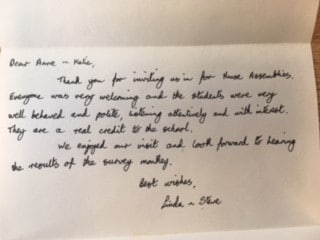 Dear Anne n Katie,
Thank you for inviting us in for House Assemblies.
Everyone was very welcoming and the students were very
well behaved and polite, listening attentively and with interest.
They are a real credit to the school.
We enjoyed our visit and look forward to hearing
the results of the survey monkey.
Best wishes,
Linda n Steve